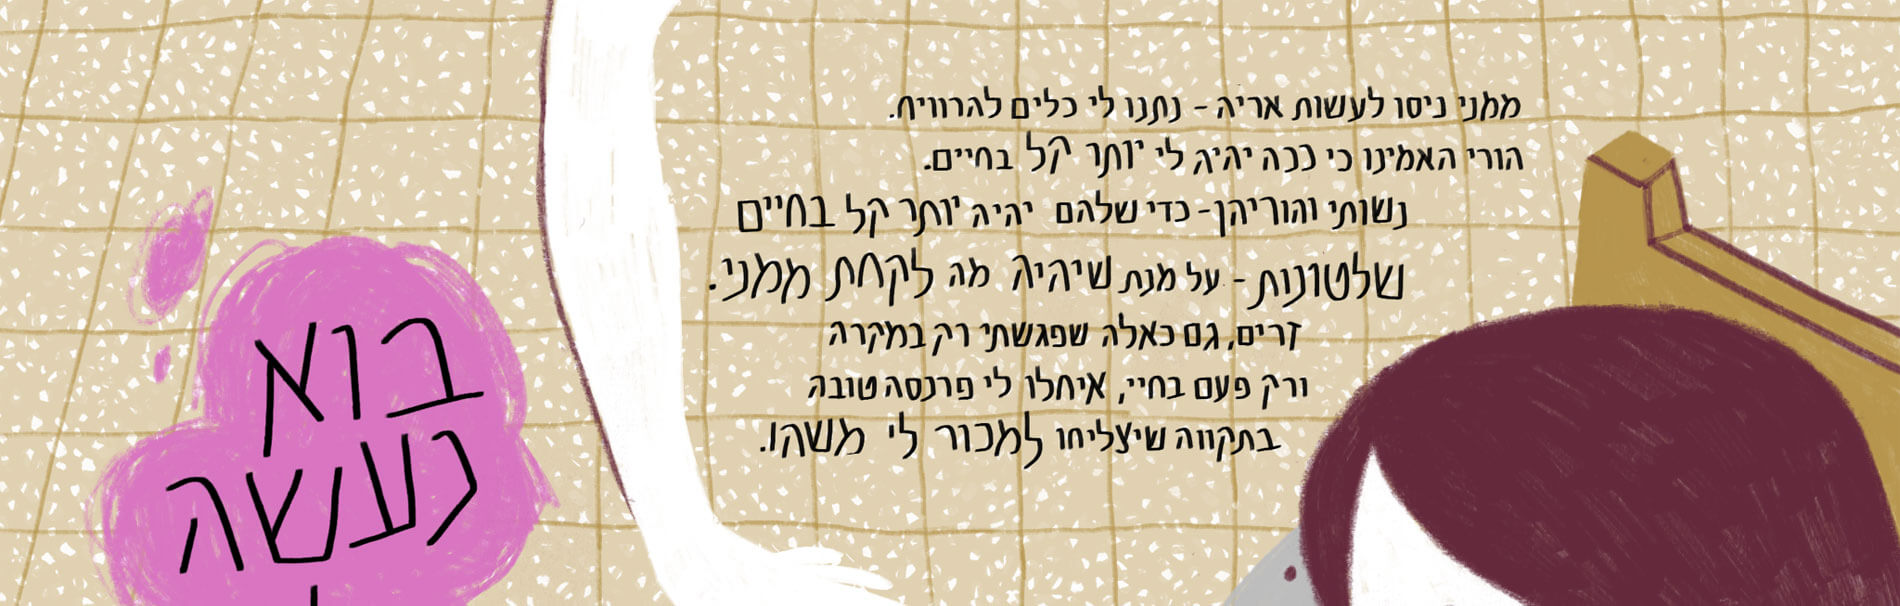 ממני ניסו לעשות אריה - נתנו לי כלים להרוויח.
הורי האמינו כי ככה יהיה לי יותר קל בחיים.
נשותי והוריהן - כדי שלהם יהיה יותר קל בחיים
שלטונות - על מנת שיהיה מה לקחת ממני.
זרים, גם כאלה שפגשתי רק במקרה
ורק פעם בחיי, איחלו לי פרנסה טובה
בתקווה שיצליחו למכור לי משהו.
בוא
נעשה